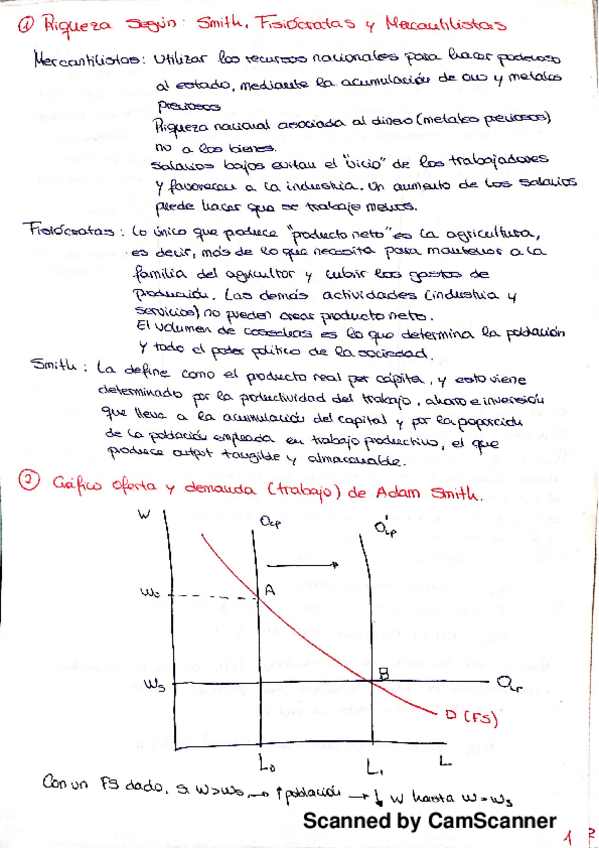 ① Riqueza según: Smith, Fisiócratas y Mercantilistas
Mercantilistas: Utilizar los recursos nacionales para hacer poderoso
al estado, mediante la acumulación de oro y metales
preciosos
Riqueza nacional asociada al dinero (metales preciosos)
no a los bienes.
Salarios bajos evitan el "vicio" de los trabajadores
y favorecen a la industria. Un aumento de los salarios
puede hacer que se trabaje menos.
Fisiócratas: Lo único que produce "producto neto" es la agricultura,
es decir, más de lo que necesita para mantener a la
familia del agricultor y cubrir los gastos de
producción. Las demás actividades (industria y
servicios) no pueden crear producto neto.
El volumen de cosechas es lo que determina la población
y todo el poder político de la sociedad.
Smith: La define como el producto real per cápita, y esto viene
determinado por la productividad del trabajo, ahorro e inversión
que lleva a la acumulación del capital y por la proporción
de la población empleada en trabajo productivo, el que
produce output tangible y almacenable.
② Gráfico oferta y demanda (trabajo) de Adam Smith.
W
Ocp
O'cp
W₀
A
Ws
B
OLP
D (FS)
L₀
L₁
L
Con un FS dado, si W>Ws → ↑ población → ↓ W hasta W=Ws
Scanned by CamScanner
1